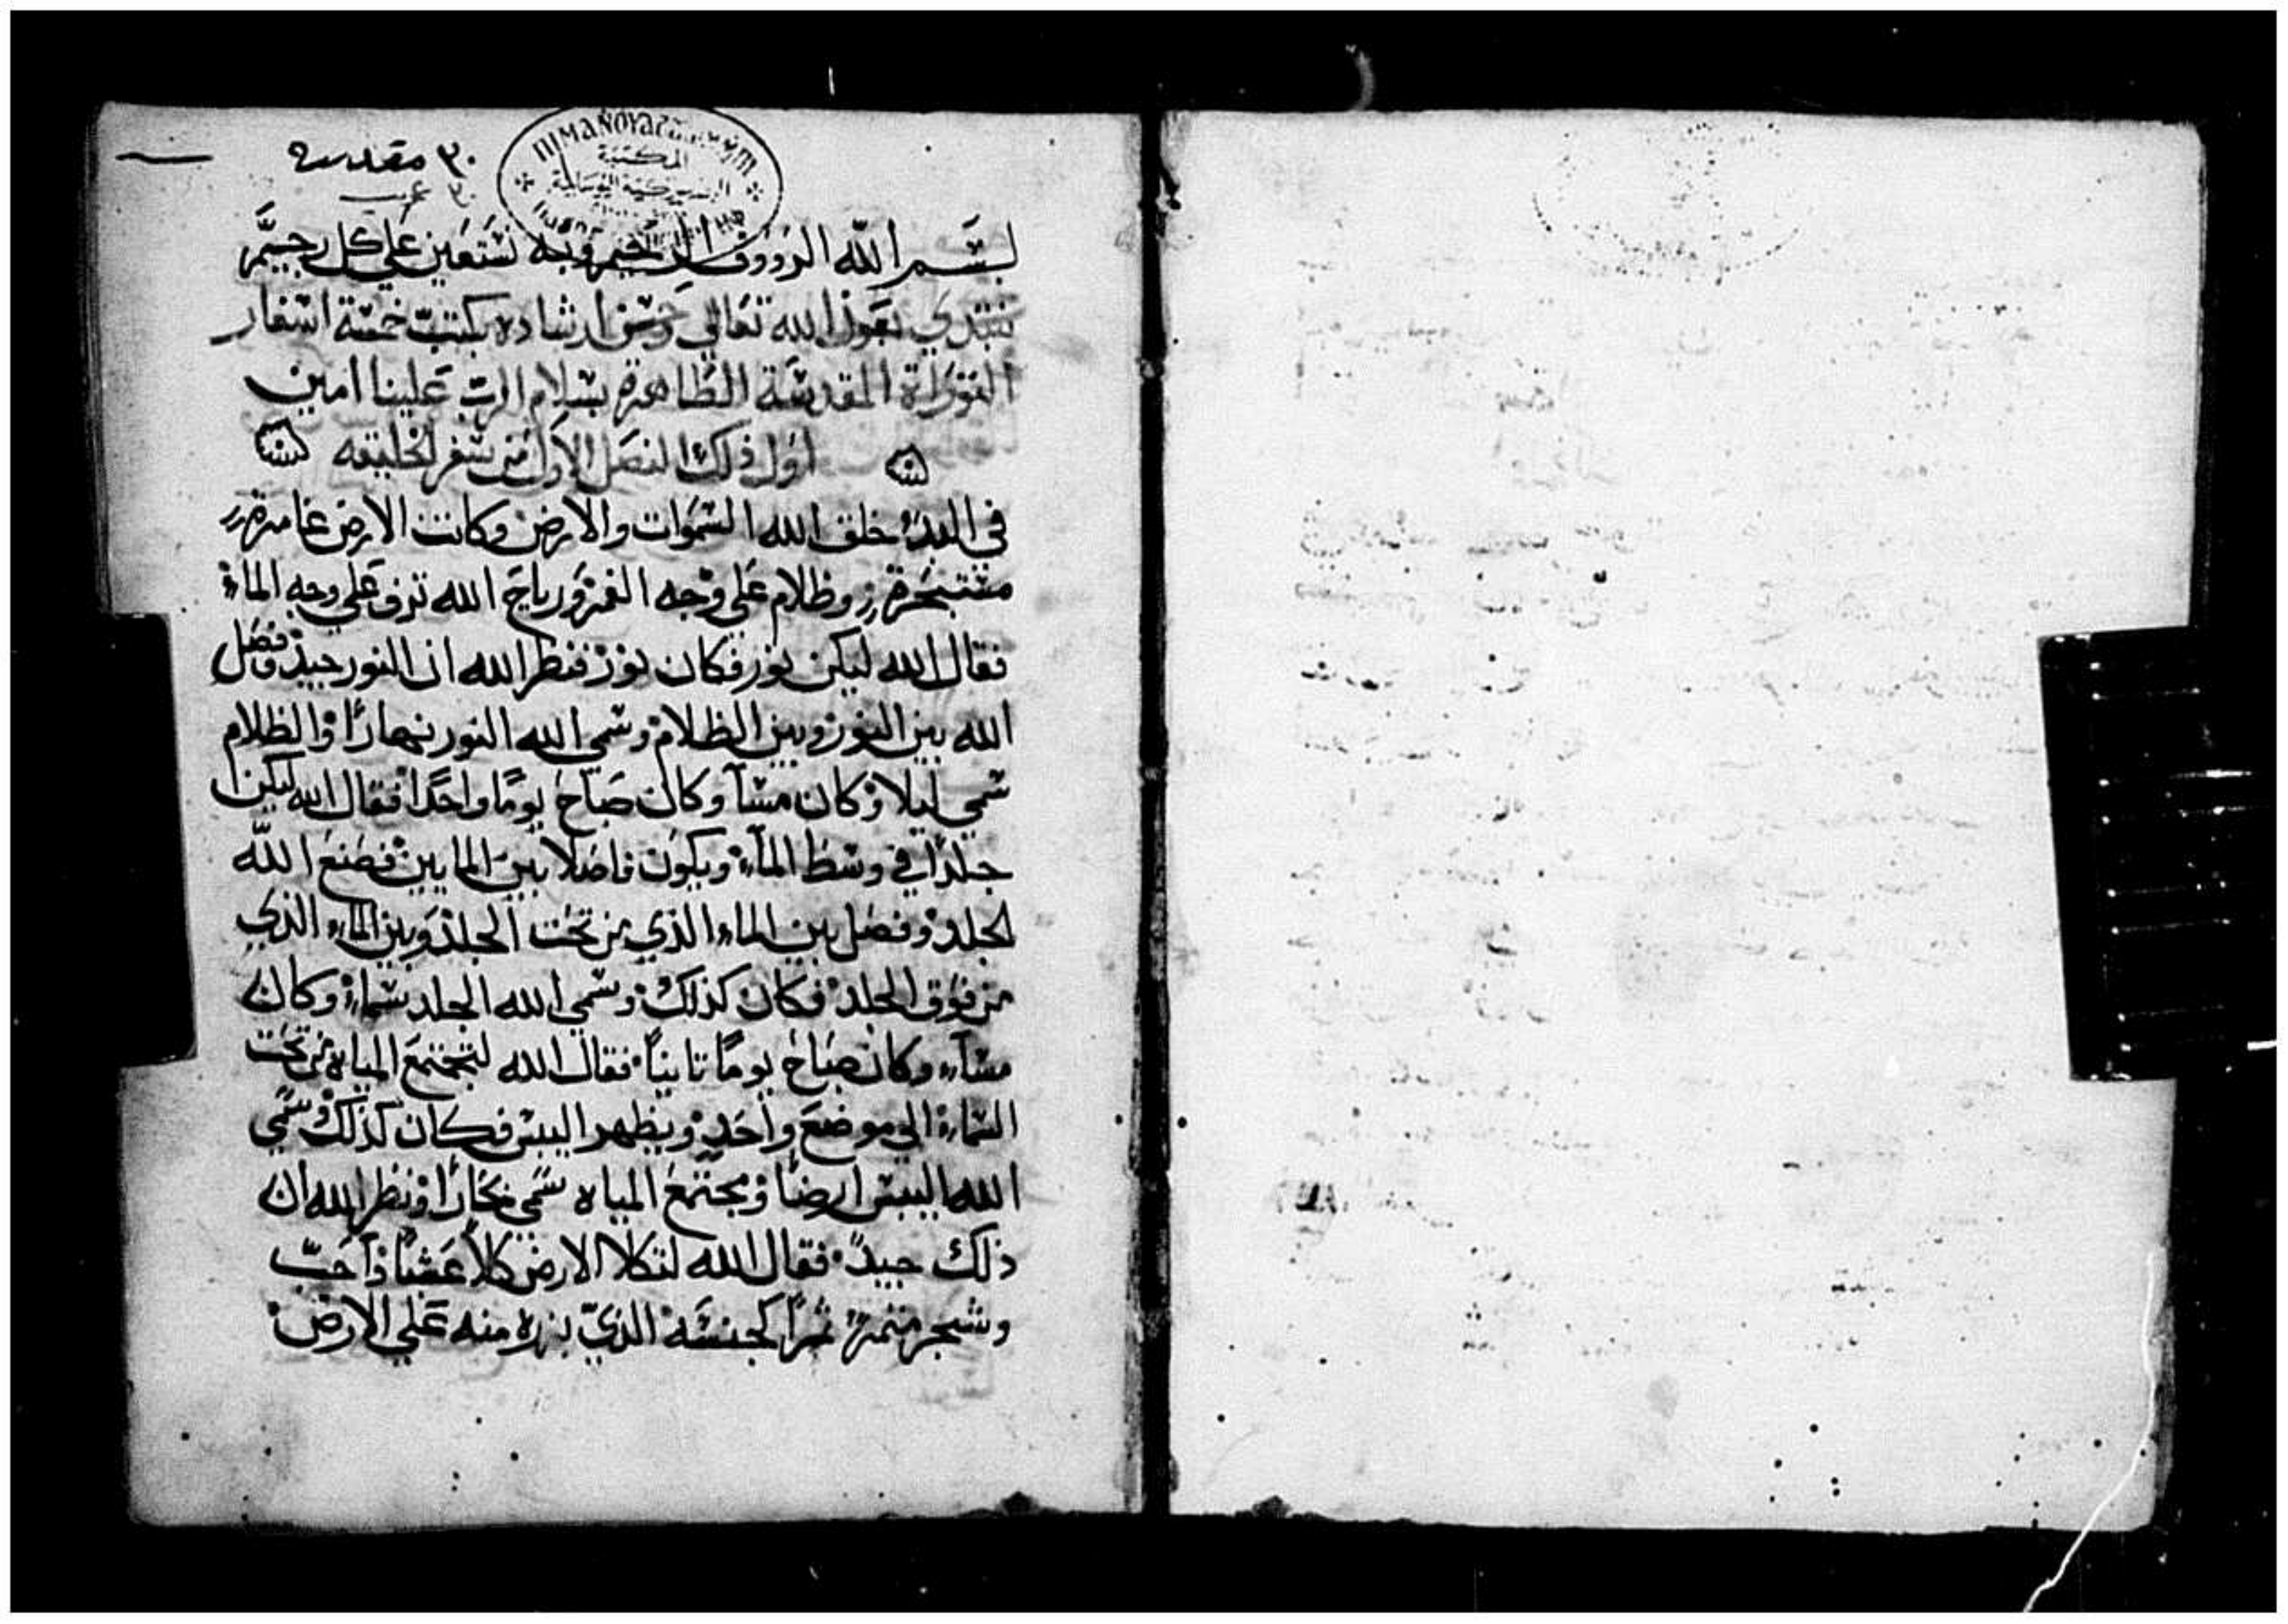 ٣٠ مقدسه
٣٠ عرب
المكتبة
البطريركية القبطية
بسم الله الرووف الرحيم وبه نستعين علي كل رجيم
نبتدي بعون الله تعالي وحسن ارشاده بكتب خمسة اسفار
التوراة المقدسة الطاهرة بسلام الرب علينا امين
اول ذلك الفصل الاول من سفر الخليقه
في البدء خلق الله السموات والارض وكانت الارض غامرة
مستبحرة وظلام علي وجه الغمر ورياح الله تزف علي وجه الماء
فقال الله ليكن نور فكان نور فنظر الله ان النور جيد وفصل
الله بين النور وبين الظلام وسمي الله النور نهارًا والظلام
سمي ليلا وكان مسآ وكان صباح يومًا واحدًا فقال الله ليكن
جلدًا في وسط المآء ويكون فاصلا بين المايين فصنع الله
الجلد وفصل بين الماء الذي من تحت الجلد وبين الماء الذي
من فوق الجلد فكان كذلك وسمي الله الجلد سماء وكان
مسآء وكان صباح يومًا تانيًا فقال الله لتجتمع المياه من تحت
السماء الي موضع واحد ويظهر اليبس فكان كذلك وسمي
الله اليبس ارضًا ومجتمع المياه سمي بحارًا ونظر الله ان
ذلك جيدً فقال الله لتكلا الارض كلاً عشبًا ذا حب
وشجر مثمرة ثمرًا لجنسه الذي بزره منه علي الارض